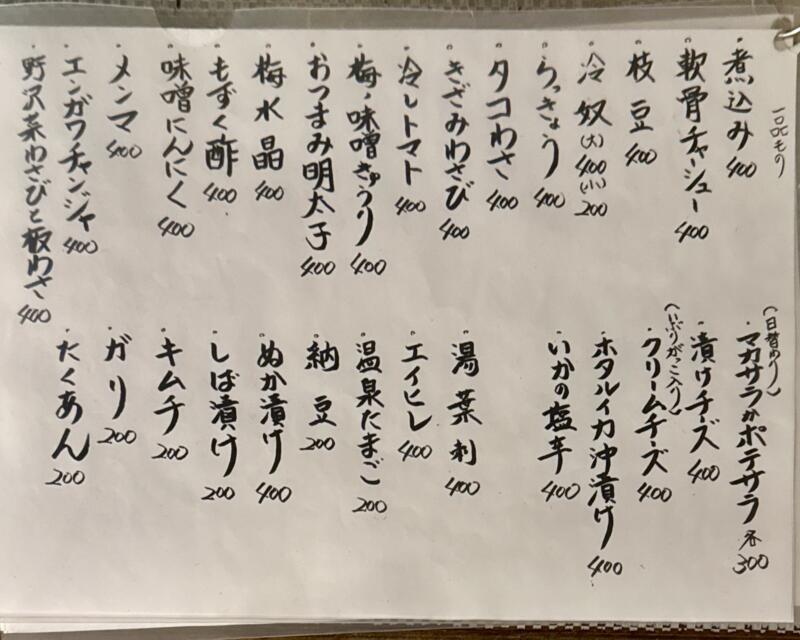 一品もの
・煮込み 400
・軟骨チャーシュー 400
・枝豆 400
・冷奴(大)400(小)200
・らっきょう 400
・タコわさ 400
・きざみわさび 400
・冷しトマト 400
・梅・味噌きゅうり 400
・おつまみ明太子 400
・梅水晶 400
・もずく酢 400
・味噌にんにく 400
・メンマ 400
・エンガワチャンジャ 400
・野沢菜わさびと板わさ 400
(日替わり)
・マカサラかポテサラ 各300
・漬けチーズ 400
(いぶりがっこ入り)
・クリームチーズ 400
・ホタルイカ沖漬け 400
・いかの塩辛 400
・湯葉刺 400
・エイヒレ 400
・温泉たまご 200
・納豆 200
・ぬか漬け 400
・しば漬け 200
・キムチ 200
・ガリ 200
・たくあん 200